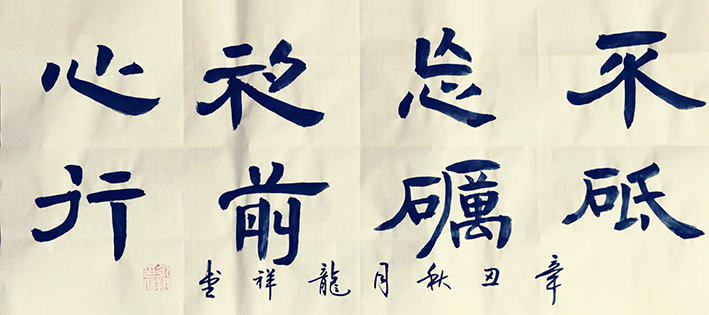 不忘初心
砥礪前行
辛丑秋月龍祥書